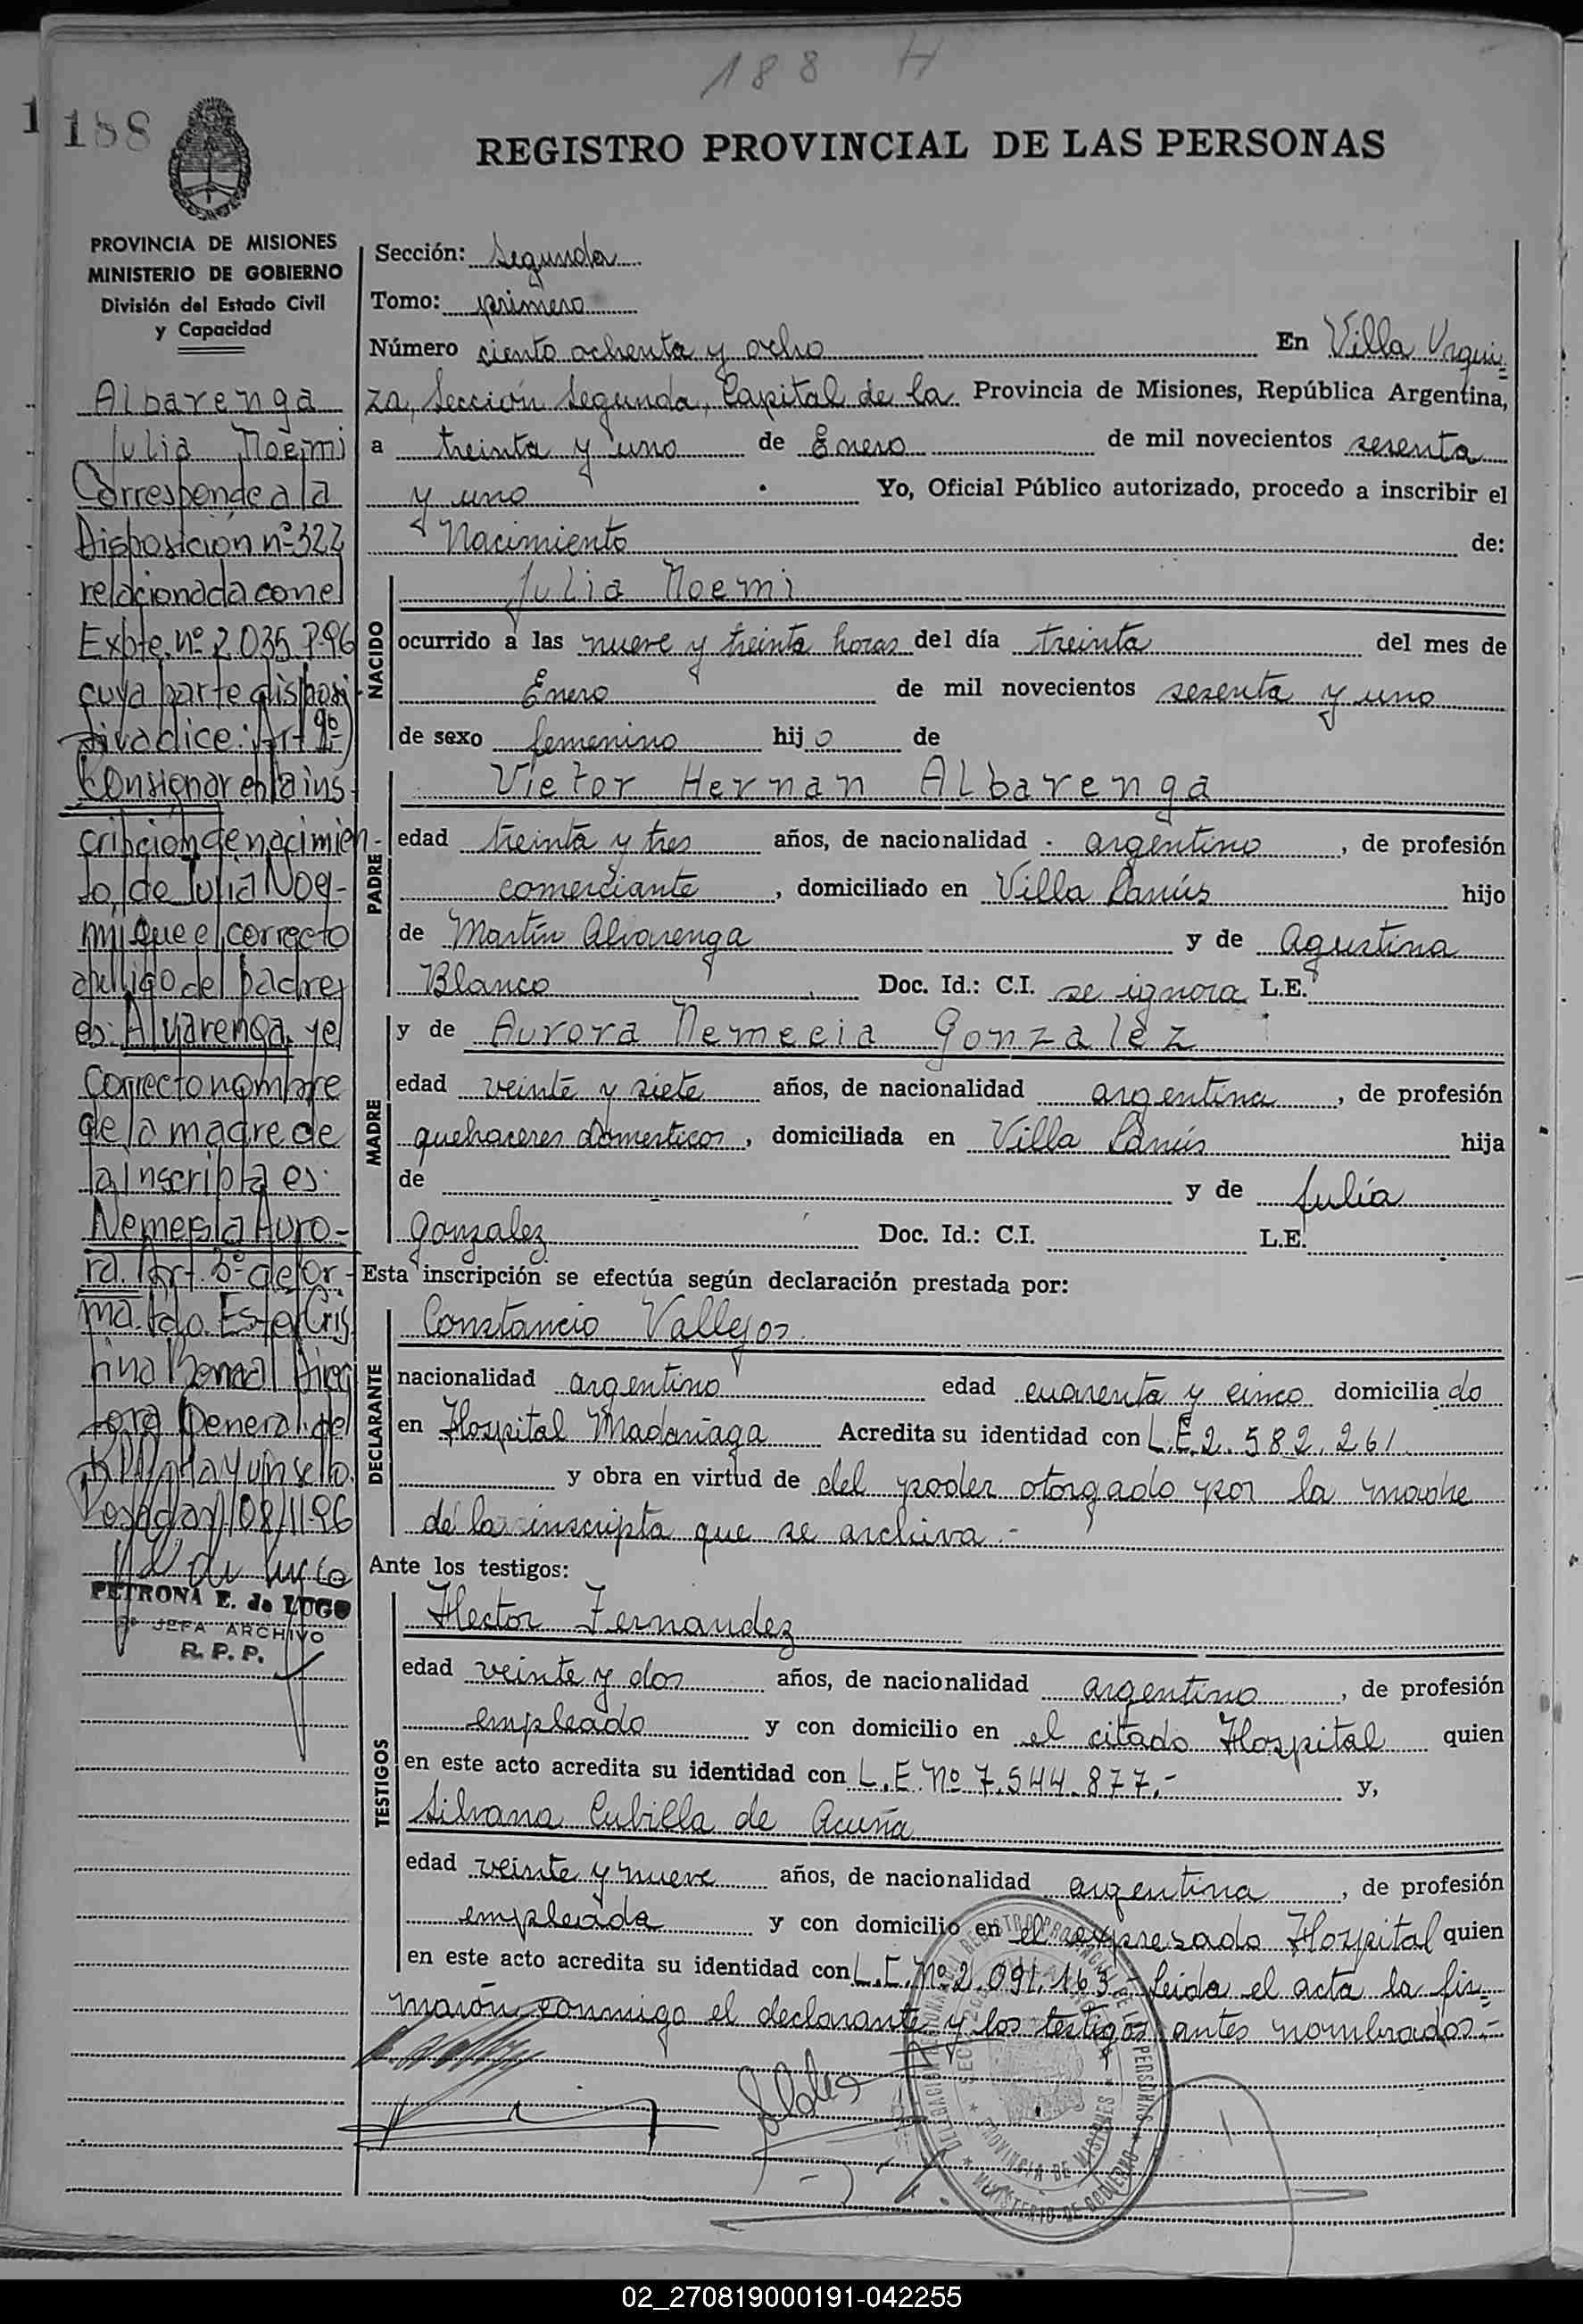 188 H
1
188
REGISTRO PROVINCIAL DE LAS PERSONAS
PROVINCIA DE MISIONES
MINISTERIO DE GOBIERNO
División del Estado Civil
y Capacidad
Albarenga
Julia Noemi
Corresponde a la
Disposición nº 322
relacionada con el
Expte. nº 2035 P-96
cuya parte disposi
tiva dice: Art
Consignar en la ins-
cripción de nacimien-
to, de Julia Noe-
mi que el correcto
apellido del padre
es: Alvarenga, y el
correcto nombre
de la madre de
la inscripta es:
Nemesia Auro-
ra. Art. 3º de for-
ma. fdo. Ester Cris
tina Direc
tora General del
R.P.P. Hay un sello.
Posadas, 08/11 96
PETRONA E. de LUGO
JEFA ARCHIVO
R. P. P.
Sección: Segunda
Tomo: primero
Número ciento ochenta y ocho En Villa Urqui=
za, Sección Segunda, Capital de la Provincia de Misiones, República Argentina,
a treinta y uno de Enero de mil novecientos sesenta
y uno Yo, Oficial Público autorizado, procedo a inscribir el
Nacimiento de:
NACIDO
Julia Noemi
ocurrido a las nueve y treinta horas del día treinta del mes de
Enero de mil novecientos sesenta y uno
de sexo femenino hijo de
PADRE
Victor Hernan Albarenga
edad treinta y tres años, de nacionalidad argentino, de profesión
comerciante, domiciliado en Villa Lanús hijo
de Martín Alvarenga y de Agustina
Blanco Doc. Id.: C.I. se ignora L.E.
MADRE
y de Aurora Nemecia Gonzalez
edad veinte y siete años, de nacionalidad argentina, de profesión
quehaceres domesticos, domiciliada en Villa Lanús hija
de y de Julia
Gonzalez Doc. Id.: C.I. L.E.
Esta inscripción se efectúa según declaración prestada por:
DECLARANTE
Constancio Vallejos
nacionalidad argentino edad cuarenta y cinco domiciliado
en Hospital Madariaga Acredita su identidad con L.E. 2.582.261
y obra en virtud de del poder otorgado por la madre
de la inscripta que se archiva.-
Ante los testigos:
TESTIGOS
Hector Fernandez
edad veinte y dos años, de nacionalidad argentino, de profesión
empleado y con domicilio en el citado Hospital quien
en este acto acredita su identidad con L.E. Nº 7.544.877.- y,
Silvana Cubilla de Acuña
edad veinte y nueve años, de nacionalidad argentina, de profesión
empleada y con domicilio en el expresado Hospital quien
en este acto acredita su identidad con L.C. Nº 2.091.163 - Leida el acta la fir=
maron conmigo el declarante y los testigos antes nombrados.-
PROVINCIA DE MISIONES
MINISTERIO DE GOBIERNO
02_270819000191-042255